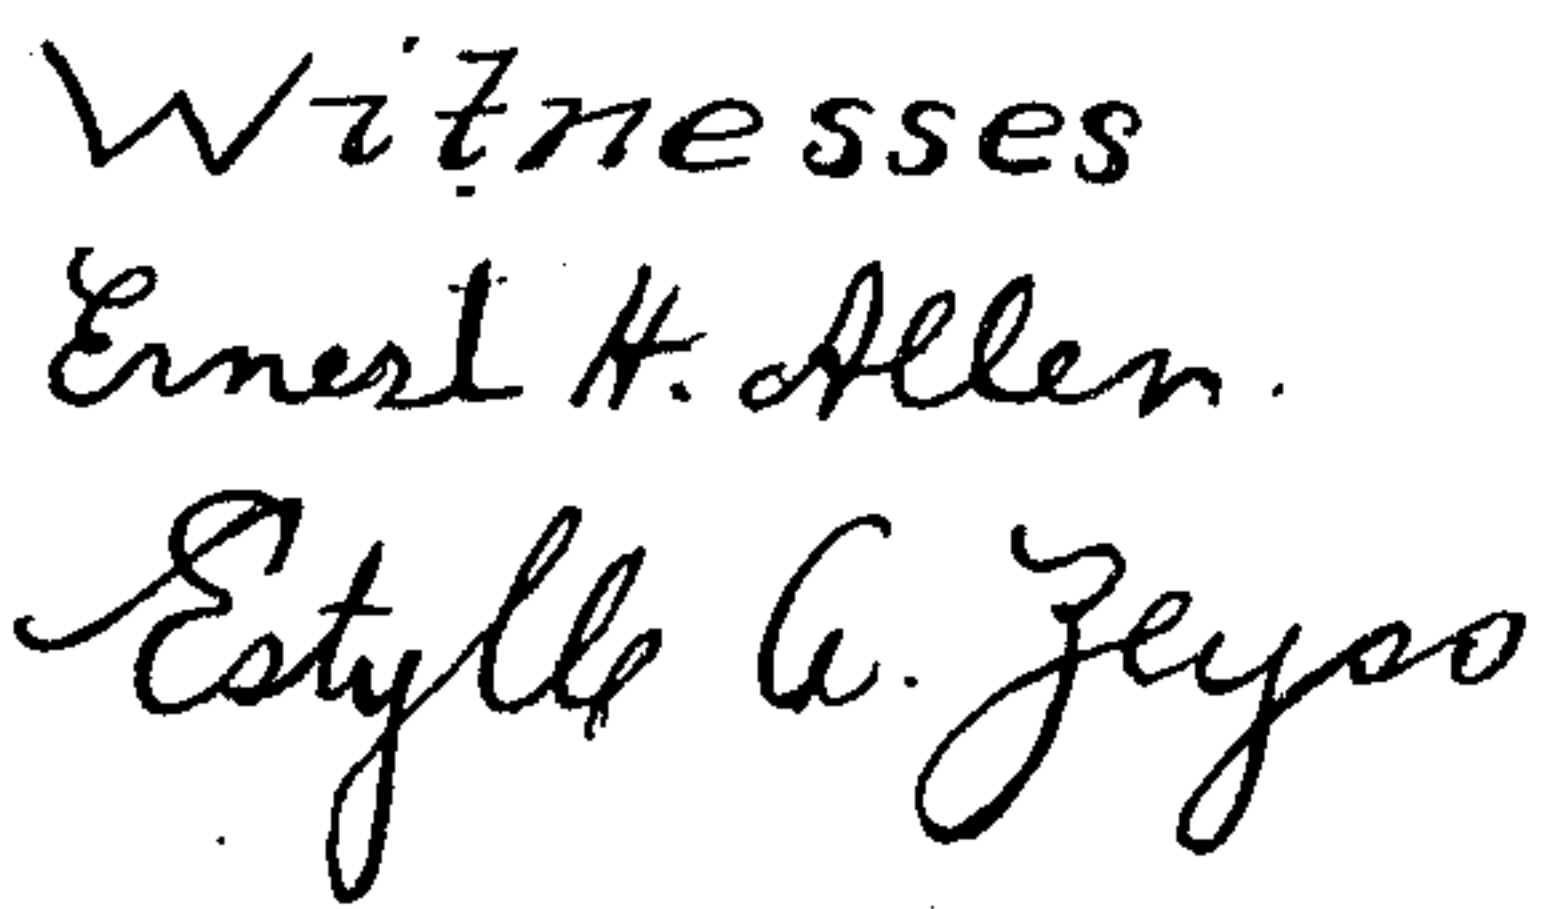 Witnesses
Ernest H. Allen.
Estylle A.